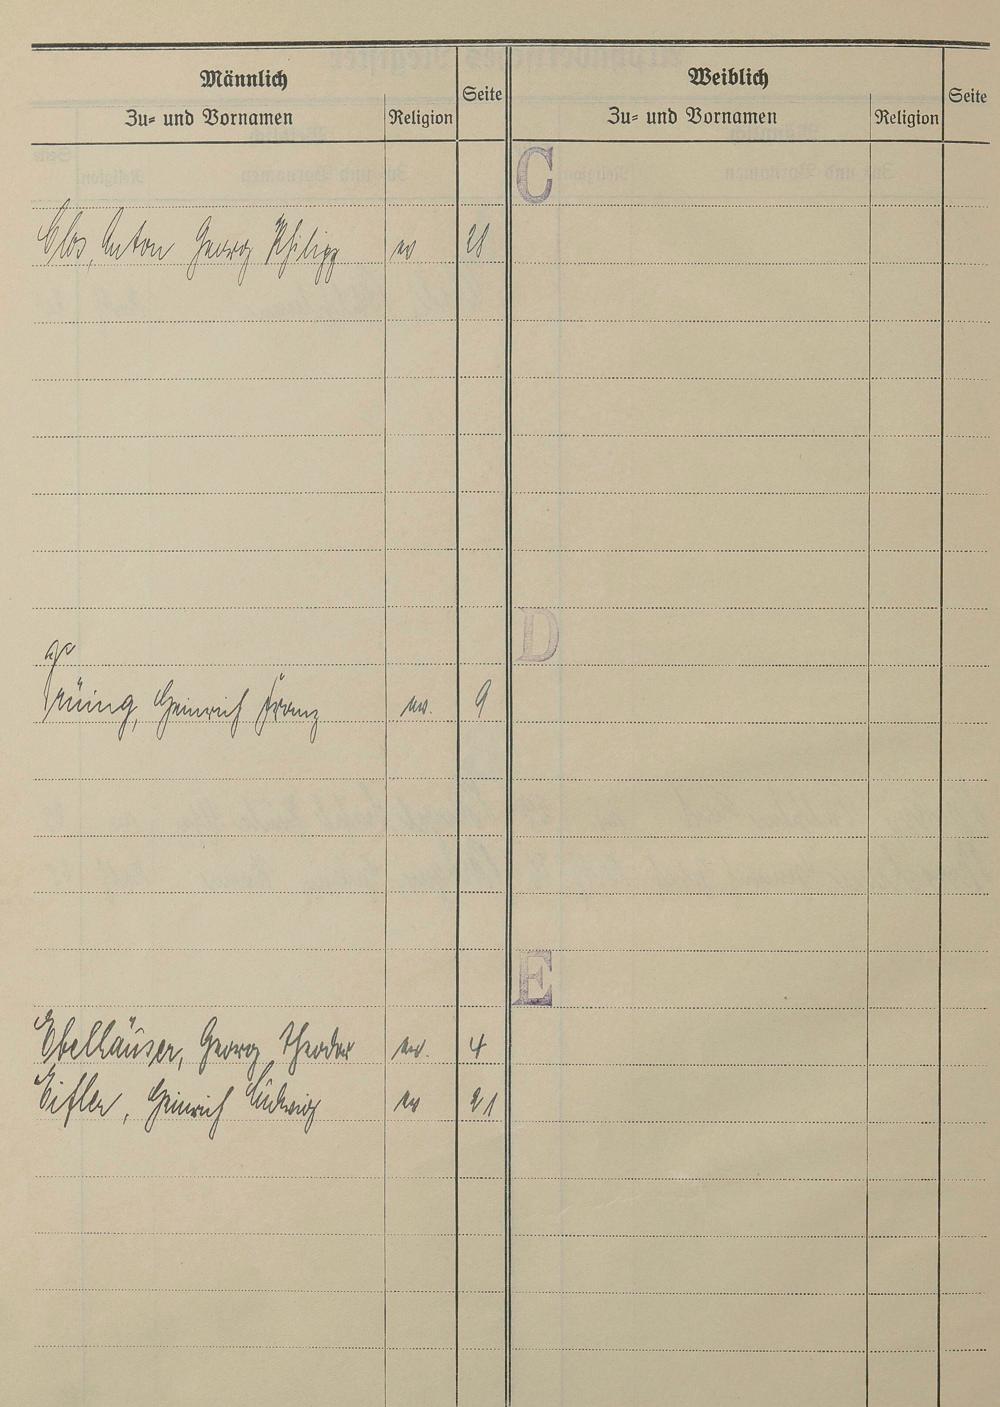 Männlich
Zu= und Vornamen
Religion
Seite
Weiblich
Zu= und Vornamen
Religion
Seite
C
Clos, Anton Georg Philipp ev 21
D
Heinrich Franz ev. 9
E
Ebelhäuser, Georg Theodor ev. 4
Eifler, Heinrich Ludwig ev 21